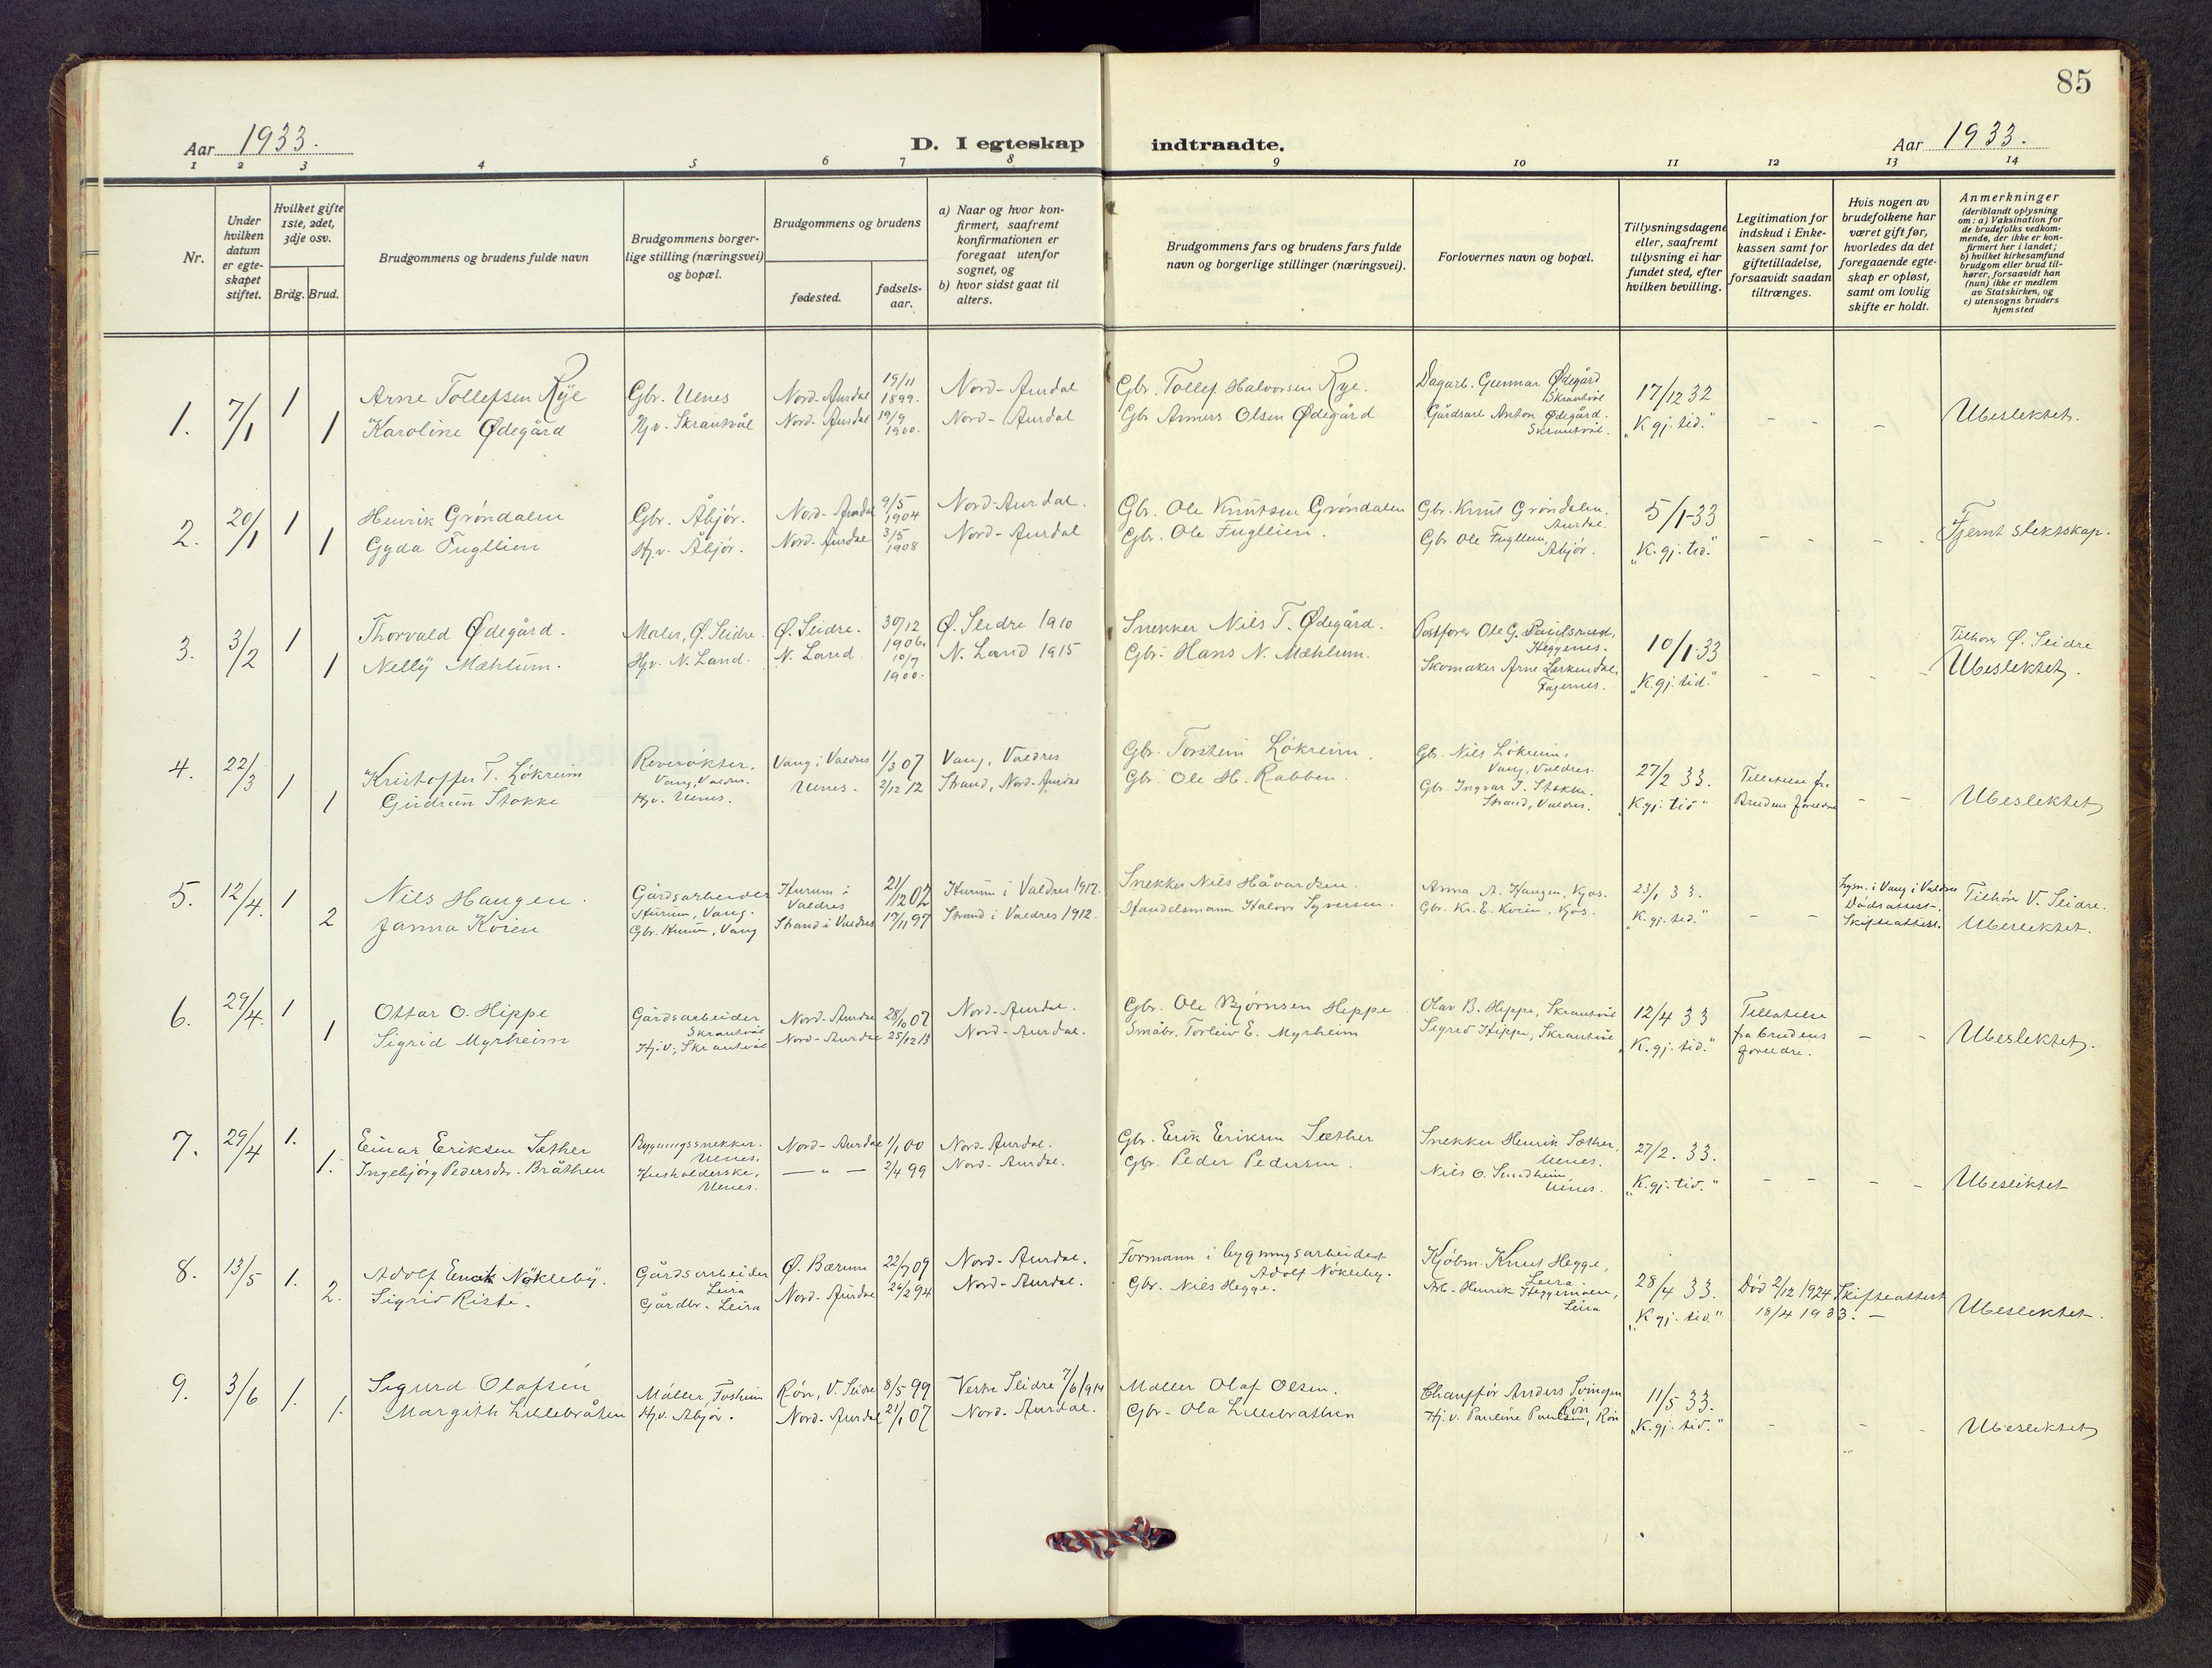 85
Aar 1933.
D. I egteskap indtraadte.
Aar 1933.
1 2 3 4 5 6 7 8 9 10 11 12 13 14
Nr.
Under hvilken datum er egteskapet stiftet.
Hvilket gifte 1ste, 2det, 3dje osv.
Brdg. Brud.
Brudgommens og brudens fulde navn
Brudgommens borgerlige stilling (næringsvei) og bopæl.
Brudgommens og brudens
fødested.
fødselsaar.
a) Naar og hvor konfirmert, saafremt konfirmationen er foregaat utenfor sognet, og
b) hvor sidst gaat til alters.
Brudgommens fars og brudens fars fulde navn og borgerlige stillinger (næringsvei).
Forlovernes navn og bopæl.
Tillysningsdagene eller, saafremt tillysning ei har fundet sted, efter hvilken bevilling.
Legitimation for indskud i Enkekassen samt for giftetilladelse, forsaavidt saadan tiltrænges.
Hvis nogen av brudefolkene har været gift før, hvorledes da det foregaaende egteskap er opløst, samt om lovlig skifte er holdt.
Anmerkninger
(deriblandt oplysning om: a) Vaksination for de brudefolks vedkommende, der ikke er konfirmert her i landet; b) hvilket kirkesamfund brudgom eller brud tilhører, forsaavidt han (hun) ikke er medlem av Statskirken, og c) utensogns bruders hjemsted
1. 7/1 1 Arne Tollefsen Rye Gbr. Ulnes Nord-Aurdal 19/11 1899. Nord-Aurdal Gbr. Tollef Halvorsen Rye. Dagarb. Gunnar Ødegård Skrautvål 17/12 32
1 Karoline Ødegård Hjv. Skrautvål Nord-Aurdal 19/9 1900. Nord-Aurdal Gbr Anners Olsen Ødegård Gårdsarb Anton Ødegård. Skrautvål. "K gj. tid." - - - Ubeslektet.
2. 20/1 1 Henrik Grøndalen Gbr. Åbjør. Nord-Aurdal 9/5 1904 Nord-Aurdal. Gbr. Ole Knutsen Grøndalen Gbr. Knut Grøndalen, Aurdal. 5/1-33
1 Gyda Fugllien Hj.v. Åbjør. Nord-Aurdal 3/5 1908 Nord-Aurdal Gbr. Ole Fugllien. Gbr Ole Fugllien, Åbjør. "K. gj. tid." - - - - Fjernt slektskap.
3. 3/2 1 Thorvald Ødegård. Maler, Ø. Slidre. Ø. Slidre. 30/12 1906. Ø. Slidre 1910 Snekker Nils T. Ødegård. Postfører Ole G. Paulsrud, Heggenes. 10/1-33 Tilhører Ø. Slidre
1 Nelly Mæhlum. Hjv. N. Land. N. Land 10/7 1900. N. Land 1915 Gbr. Hans N. Mæhlum. Skomaker Arne Lerkendal Fagernes. "K. gj. tid." - - - - Ubeslektet.
4. 22/3 1 Kristoffer T. Lökreim Reverøkter, Vang, Valdres. Vang i Valdres 1/3 07 Vang, Valdres Gbr. Torstein Lökreim Gbr. Nils Lökreim, Vang, Valdres. 27/2 33.
1 Gudrun Stokke Hjv. Ulnes. Ulnes. 2/12 12 Strand, Nord-Aurdal Gbr. Ole H. Rabben. Gbr. Ingvar I. Stokke. Strand, Valdres. "K gj. tid" Tillatelse fra Brudens foreldre - - Ubeslektet
5. 12/4. 1 Nils Haugen. Gårdsarbeider Hurum, Vang. Hurum i Valdres 21/12 02 Hurum i Valdres 1917. Snekker Nils Håvardsen. Anna A. Haugen, Kjos. 23/1 33. Tilhör V. Slidre.
2 Janna Kvien Gbr. Hurum, Vang Strand i Valdres 17/11 97 Strand i Valdres 1912. Handelsmann Halvor Syversen. Gbr. Kr. E. Kvien, Kjos. "K. gj. tid." - - Lysn. i Vang i Valdres Dödsattest. Skifteattest. Ubeslektet.
6. 29/4. 1 Ottar O. Hippe Gårdsarbeider Skrautvål Nord-Aurdal 28/10 07 Nord-Aurdal. Gbr. Ole Bjørnsen Heppe Olav B. Heppe, Skrautvål 12/4 33 Tillatelse fra brudens foreldre.
1 Sigrid Myrheim Hj.v., Skrautvål Nord-Aurdal 25/12 13 Nord-Aurdal. Småbr. Torleiv E. Myrheim Sigrid Hippe, Skrautvål "K. gj. tid." - - Ubeslektet.
7. 29/4 1. Einar Eriksen Sæther Bygningssnekker. Ulnes. Nord-Aurdal 1/1 00 Nord-Aurdal. Gbr. Erik Eriksen Sæther Snekker Henrik Sæther, Ulnes. 27/2. 33.
1. Ingebjörg Pedersdr. Bråthen Husholderske, Ulnes. — " — 2/4 99 Nord-Aurdal. Gbr. Peder Pedersen. Nils O. Sundheim Ulnes. "K. gj. tid." - - - - Ubeslektet
8. 13/5 1. Adolf Nökleby. Gårdsarbeider Leira Ø. Bærum 22/7 09 Nord-Aurdal. Formann i bygningsarbeidet Adolf Nökleby. Kjöbm. Knut Hegge, Leira. 28/4 33.
2. Sigrid Riste. Gårdbr. Leira Nord-Aurdal 26/2 94 Nord-Aurdal. Gbr. Nils Hegge. Arb. Henrik Heggemoen, Leira "K gj. tid." Död 2/12 1924 Skifteattest 18/4 1933. - Ubeslektet.
9. 3/6 1. Sigurd Olafsen Möller, Fosheim Røn, V. Slidre 8/5 99 Vestre Slidre 7/6 1914 Møller Olaf Olsen. Chauffør Anders Svingen Røn 11/5 33.
1. Margith Lillebråten Hjv. Åbjör. Nord-Aurdal 21/1 07 Nord-Aurdal. Gbr. Ola Lillebråthen Hj.v. Pauline Paulsen, Røn "K. gj. tid." - - - Ubeslektet